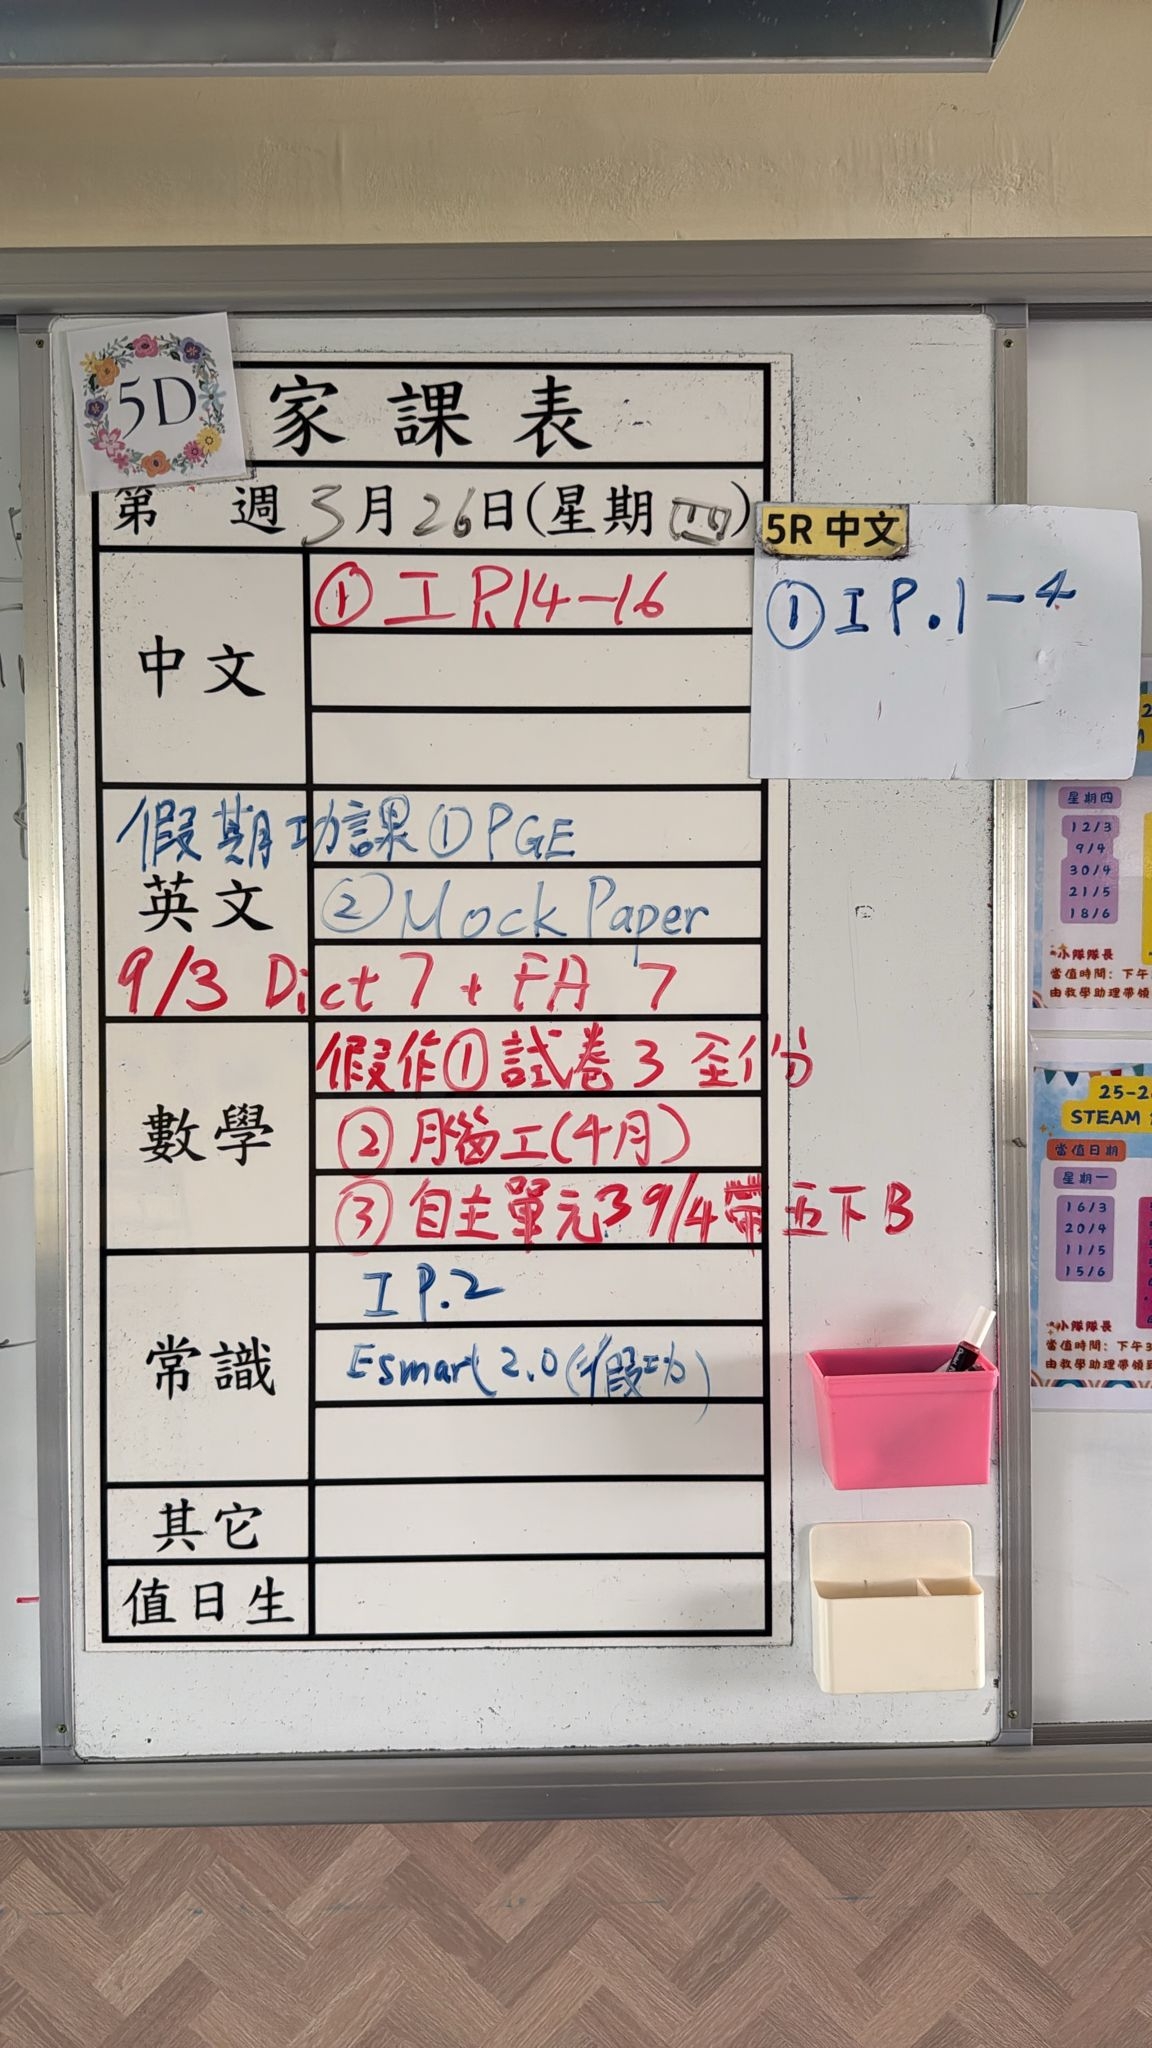 5D
家課表
第 週 3月26日(星期四)
5R 中文
① I P.1-4
中文
① 工 P.14-16
假期功課 ① PGE
英文
② Mock Paper
9/3 Dict 7 + FA 7
數學
假作① 試卷3 全份
② 腦工(4月)
③ 自主單元3 9/4帶五下B
常識
工 P.2
Esmart 2.0 (假功)
其它
值日生
星期四
12/3
9/4
30/4
21/5
18/6
小隊隊長
當值時間：下午
由教學助理帶領
STEAM
當值日期
星期一
16/3
20/4
11/5
15/6
小隊隊長
當值時間：下午3
由教學助理帶領